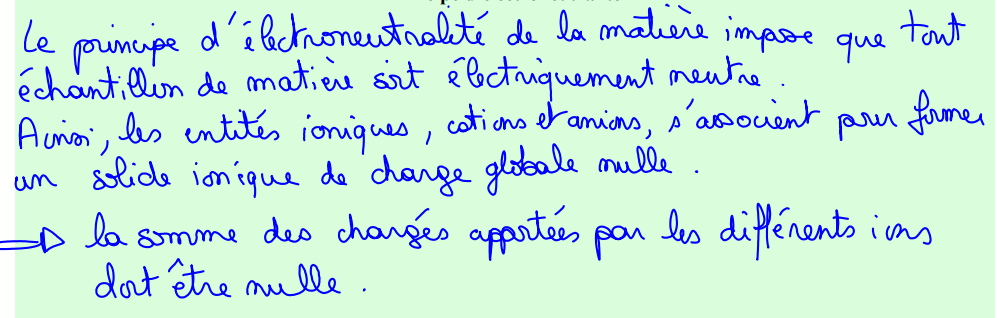 Le principe d'électroneutralité de la matière impose que tout
échantillon de matière soit électriquement neutre.
Ainsi, les entités ioniques, cations et anions, s'associent pour former
un solide ionique de charge globale nulle.
⇒ la somme des charges apportées par les différents ions
doit être nulle.